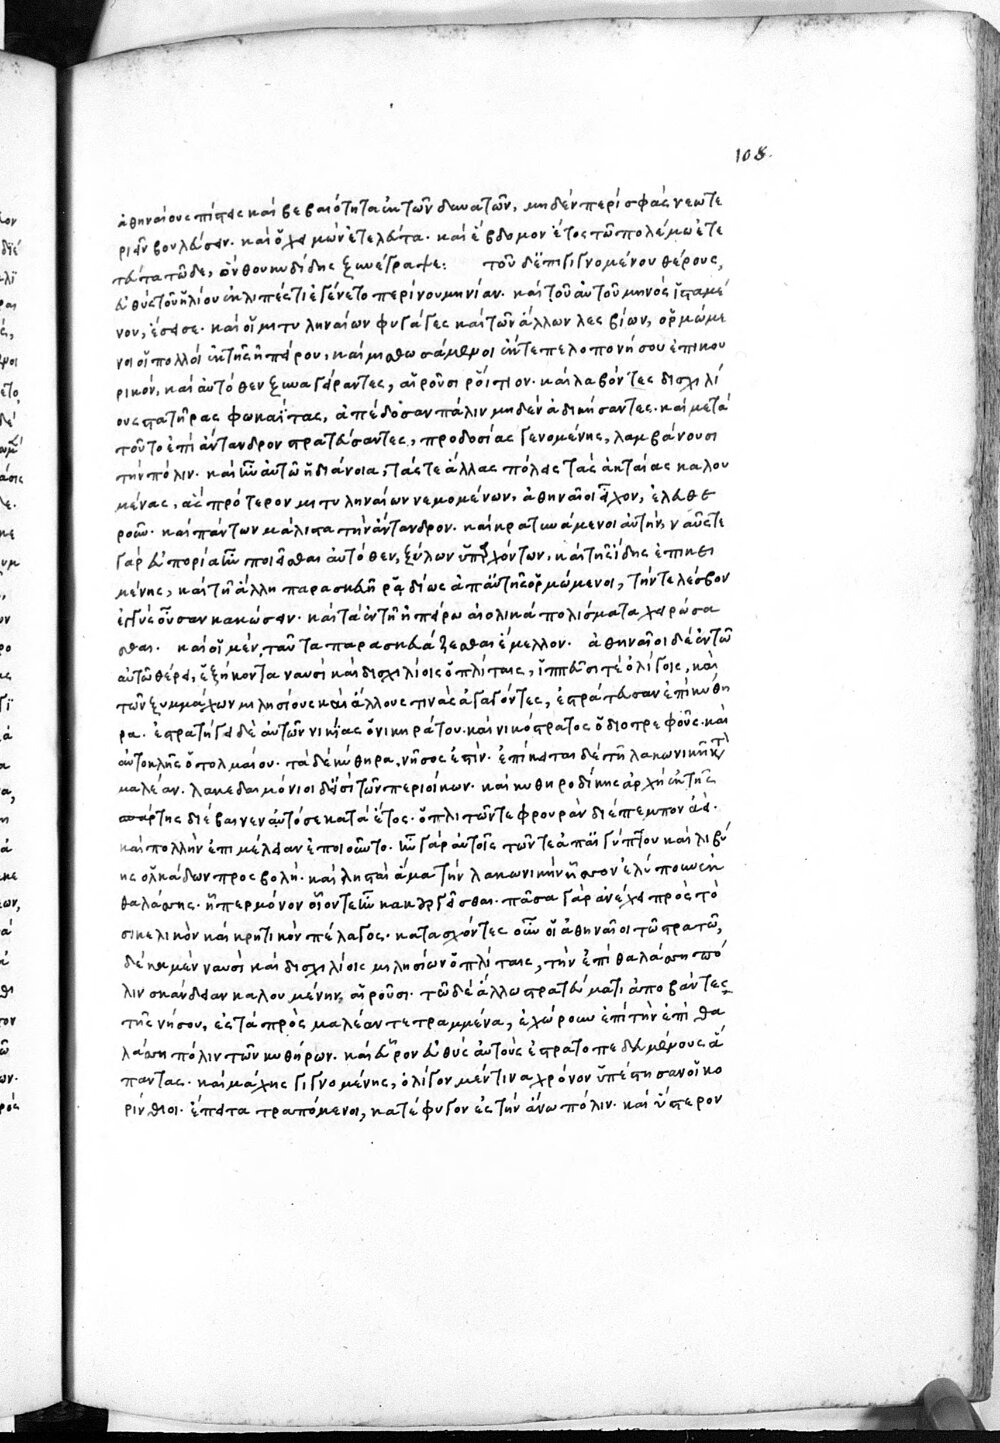 108.
ἀθηναίους πίστεις καὶ βεβαιότητα ἐκ τῶν δυνατῶν, μηδέν περὶ σφᾶς νεώτε
ριεῖν βουλεύσειν. καὶ ὁ χειμὼν ἐτελεύτα. καὶ ἕβδομον ἔτος τῶ πολέμω ἐτε
λεύτα τῶδε, ὃν θουκυδίδης ξυνέγραψε: τοῦ δ' ἐπιγιγνομένου θέρους,
εὐθὺς τοῦ ἡλίου ἐκλιπές τι ἐγένετο περὶ νουμηνίαν. καὶ τοῦ αὐτοῦ μηνὸς ἱσταμέ
νου, ἔσεισε. καὶ οἱ μιτυληναίων φυγάδες καὶ τῶν ἄλλων λεσβίων, ὁρμώμε
νοι οἱ πολλοὶ ἐκ τῆς ἠπείρου, καὶ μισθωσάμενοι ἔκ τε πελοπονήσου ἐπικου
ρικόν, καὶ αὐτόθεν ξυναγείραντες, αἱροῦσι ῥοίτιον. καὶ λαβόντες δισχιλί
ους στατῆρας φωκαΐτας, ἀπέδοσαν πάλιν μηδὲν ἀδικήσαντες. καὶ μετὰ
τοῦτο ἐπὶ ἄντανδρον στρατεύσαντες, προδοσίας γενομένης, λαμβάνουσι
τὴν πόλιν. καὶ ἦν αὐτῶ ἡ διάνοια, τάς τε ἄλλας πόλεις τὰς ἀκταίας καλου
μένας, ἃς πρότερον μιτυληναίων νεμομένων, ἀθηναῖοι εἶχον, ἐλευθε
ροῦν. καὶ πάντων μάλιστα τὴν ἄντανδρον. καὶ κρατυνάμενοι αὐτήν, ναῦς τε
γὰρ εὐπορία ἦν ποιεῖσθαι αὐτόθεν, ξύλων ὑπαρχόντων, καὶ τῆς ἴδης ἐπικει
μένης, καὶ τῆ ἄλλη παρασκευῆ ῥαδίως ἀπ' αὐτῆς ὁρμώμενοι, τήν τε λέσβον
ἐγγὺς οὖσαν κακώσειν. καὶ τὰ ἐν τῆ ἠπείρω αἰολικὰ πολίσματα χειρώσα
σθαι. καὶ οἱ μέν, ταῦτα παρασκευάζεσθαι ἔμελλον. ἀθηναῖοι δὲ ἐν τῶ
αὐτῶ θέρει, ἑξήκοντα ναυσὶ καὶ δισχιλίοις ὁπλίταις, ἱππεῦσί τε ὀλίγοις, καὶ
τῶν ξυμμάχων μιλησίους καὶ ἄλλους τινὰς ἀγαγόντες, ἐστράτευσαν ἐπὶ κύθη
ρα. ἐστρατήγει δὲ αὐτῶν νικίας ὁ νικηράτου. καὶ νικόστρατος ὁ διοτρεφοῦς. καὶ
αὐτοκλῆς ὁ τολμαίου. τὰ δὲ κύθηρα, νῆσός ἐστιν. ἐπίκειται δὲ τῆ λακωνικῆ κατὰ
μαλέαν. λακεδαιμόνιοι δ' εἰσὶ τῶν περιοίκων. καὶ κυθηροδίκης ἀρχὴ ἐκ τῆς
σπάρτης διέβαινεν αὐτόσε κατὰ ἔτος. ὁπλιτῶν τε φρουρὰν διέπεμπον ἀεί.
καὶ πολλὴν ἐπιμέλειαν ἐποιοῦντο. ἦν γὰρ αὐτοῖς τῶν τε ἀπ' αἰγύπτου καὶ λιβύ
ης ὁλκάδων προσβολή. καὶ λησταὶ ἅμα τὴν λακωνικὴν ἧσσον ἐλύπουν ἐκ
θαλάσσης. ἧπερ μόνον οἷόν τε ἦν κακουργεῖσθαι. πᾶσα γὰρ ἀνέχει πρὸς τὸ
σικελικὸν καὶ κρητικὸν πέλαγος. κατασχόντες οὖν οἱ ἀθηναῖοι τῶ στρατῶ,
δέκα μὲν ναυσὶ καὶ δισχιλίοις μιλησίων ὁπλίταις, τὴν ἐπὶ θαλάσση πό
λιν σκάνδειαν καλουμένην, αἱροῦσι. τῶ δὲ ἄλλω στρατεύματι ἀποβάντες
τῆς νήσου, ἐς τὰ πρὸς μαλέαν τετραμμένα, ἐχώρουν ἐπὶ τὴν ἐπὶ θα
λάσση πόλιν τῶν κυθήρων. καὶ εὗρον εὐθὺς αὐτοὺς ἐστρατοπεδευμένους ἅ
παντας. καὶ μάχης γιγνομένης, ὀλίγον μέν τινα χρόνον ὑπέστησαν οἱ κυ
θήριοι. ἔπειτα τραπόμενοι, κατέφυγον ἐς τὴν ἄνω πόλιν. καὶ ὕστερον